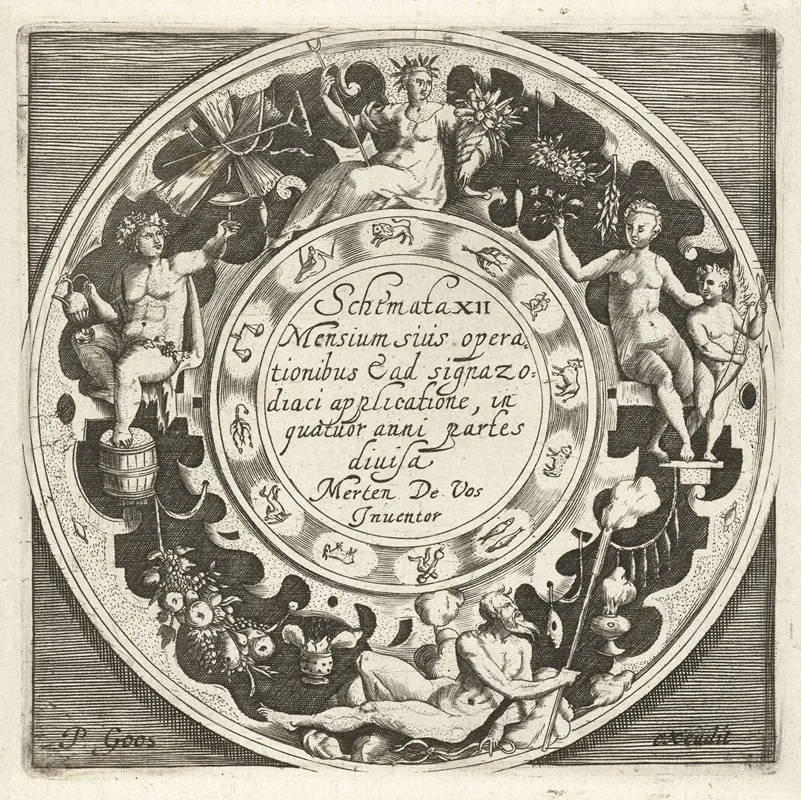 Schemata XII
Mensium suis opera,
tionibus & ad signa zo:
diaci applicatione, in
quatuor anni partes
divisa
Merten De Vos
Inventor
P. Goos
excudit